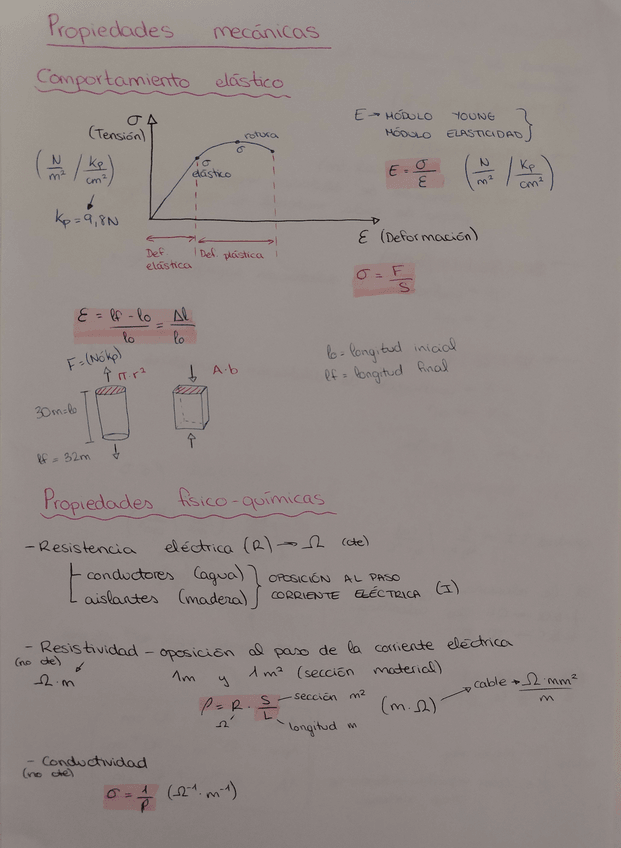 Propiedades mecánicas
Comportamiento elástico
σ
(Tensión)
(N/m² / Kp/cm²)
Kp = 9,8N
σ
elástico
rotura
σ
ε (Deformación)
Def
elástica
Def. plástica
E → MÓDULO YOUNG
MÓDULO ELASTICIDAD
E = σ/ε (N/m² / Kp/cm²)
σ = F/S
ε = lf - lo / lo = Δl / lo
lo = longitud inicial
lf = longitud final
F = (N ó Kp)
π·r²
A·b
30m = lo
lf = 32m
Propiedades físico-químicas
- Resistencia eléctrica (R) → Ω (cte)
conductores (agua)
aislantes (madera)
OPOSICIÓN AL PASO
CORRIENTE ELÉCTRICA (I)
- Resistividad - oposición al paso de la corriente eléctrica
(no cte)
Ω·m
1m y 1m² (sección material)
ρ = R · S/L (m·Ω) → cable → Ω·mm²/m
sección m²
Ω
longitud m
- Conductividad
(no cte)
σ = 1/ρ (Ω⁻¹·m⁻¹)